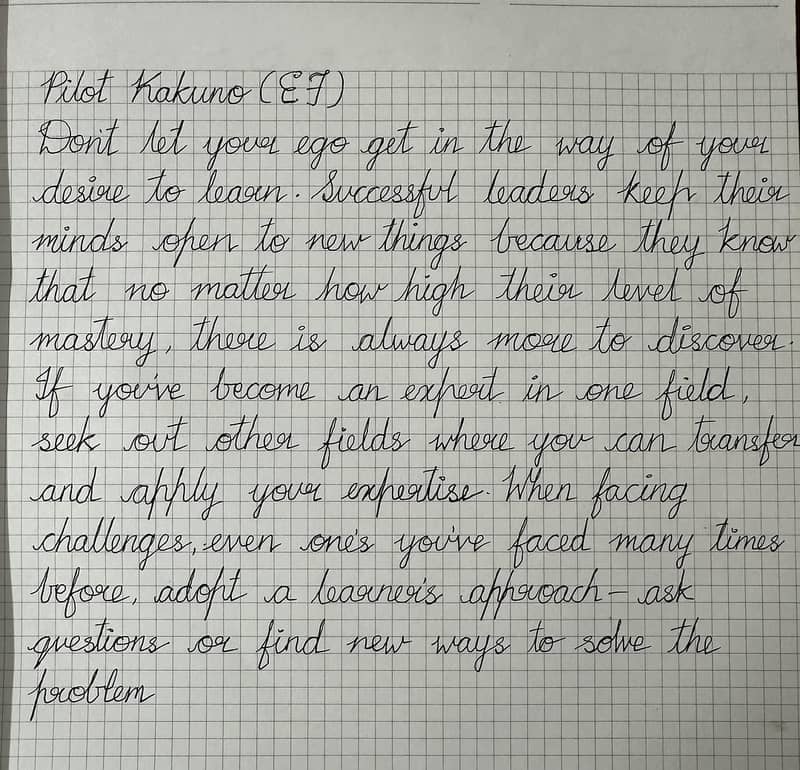 Pilot Kakuno (EF)
Don't let your ego get in the way of your
desire to learn. Successful leaders keep their
minds open to new things because they know
that no matter how high their level of
mastery, there is always more to discover.
If you've become an expert in one field,
seek out other fields where you can transfer
and apply your expertise. When facing
challenges, even one's you've faced many times
before, adopt a learner's approach – ask
questions or find new ways to solve the
problem